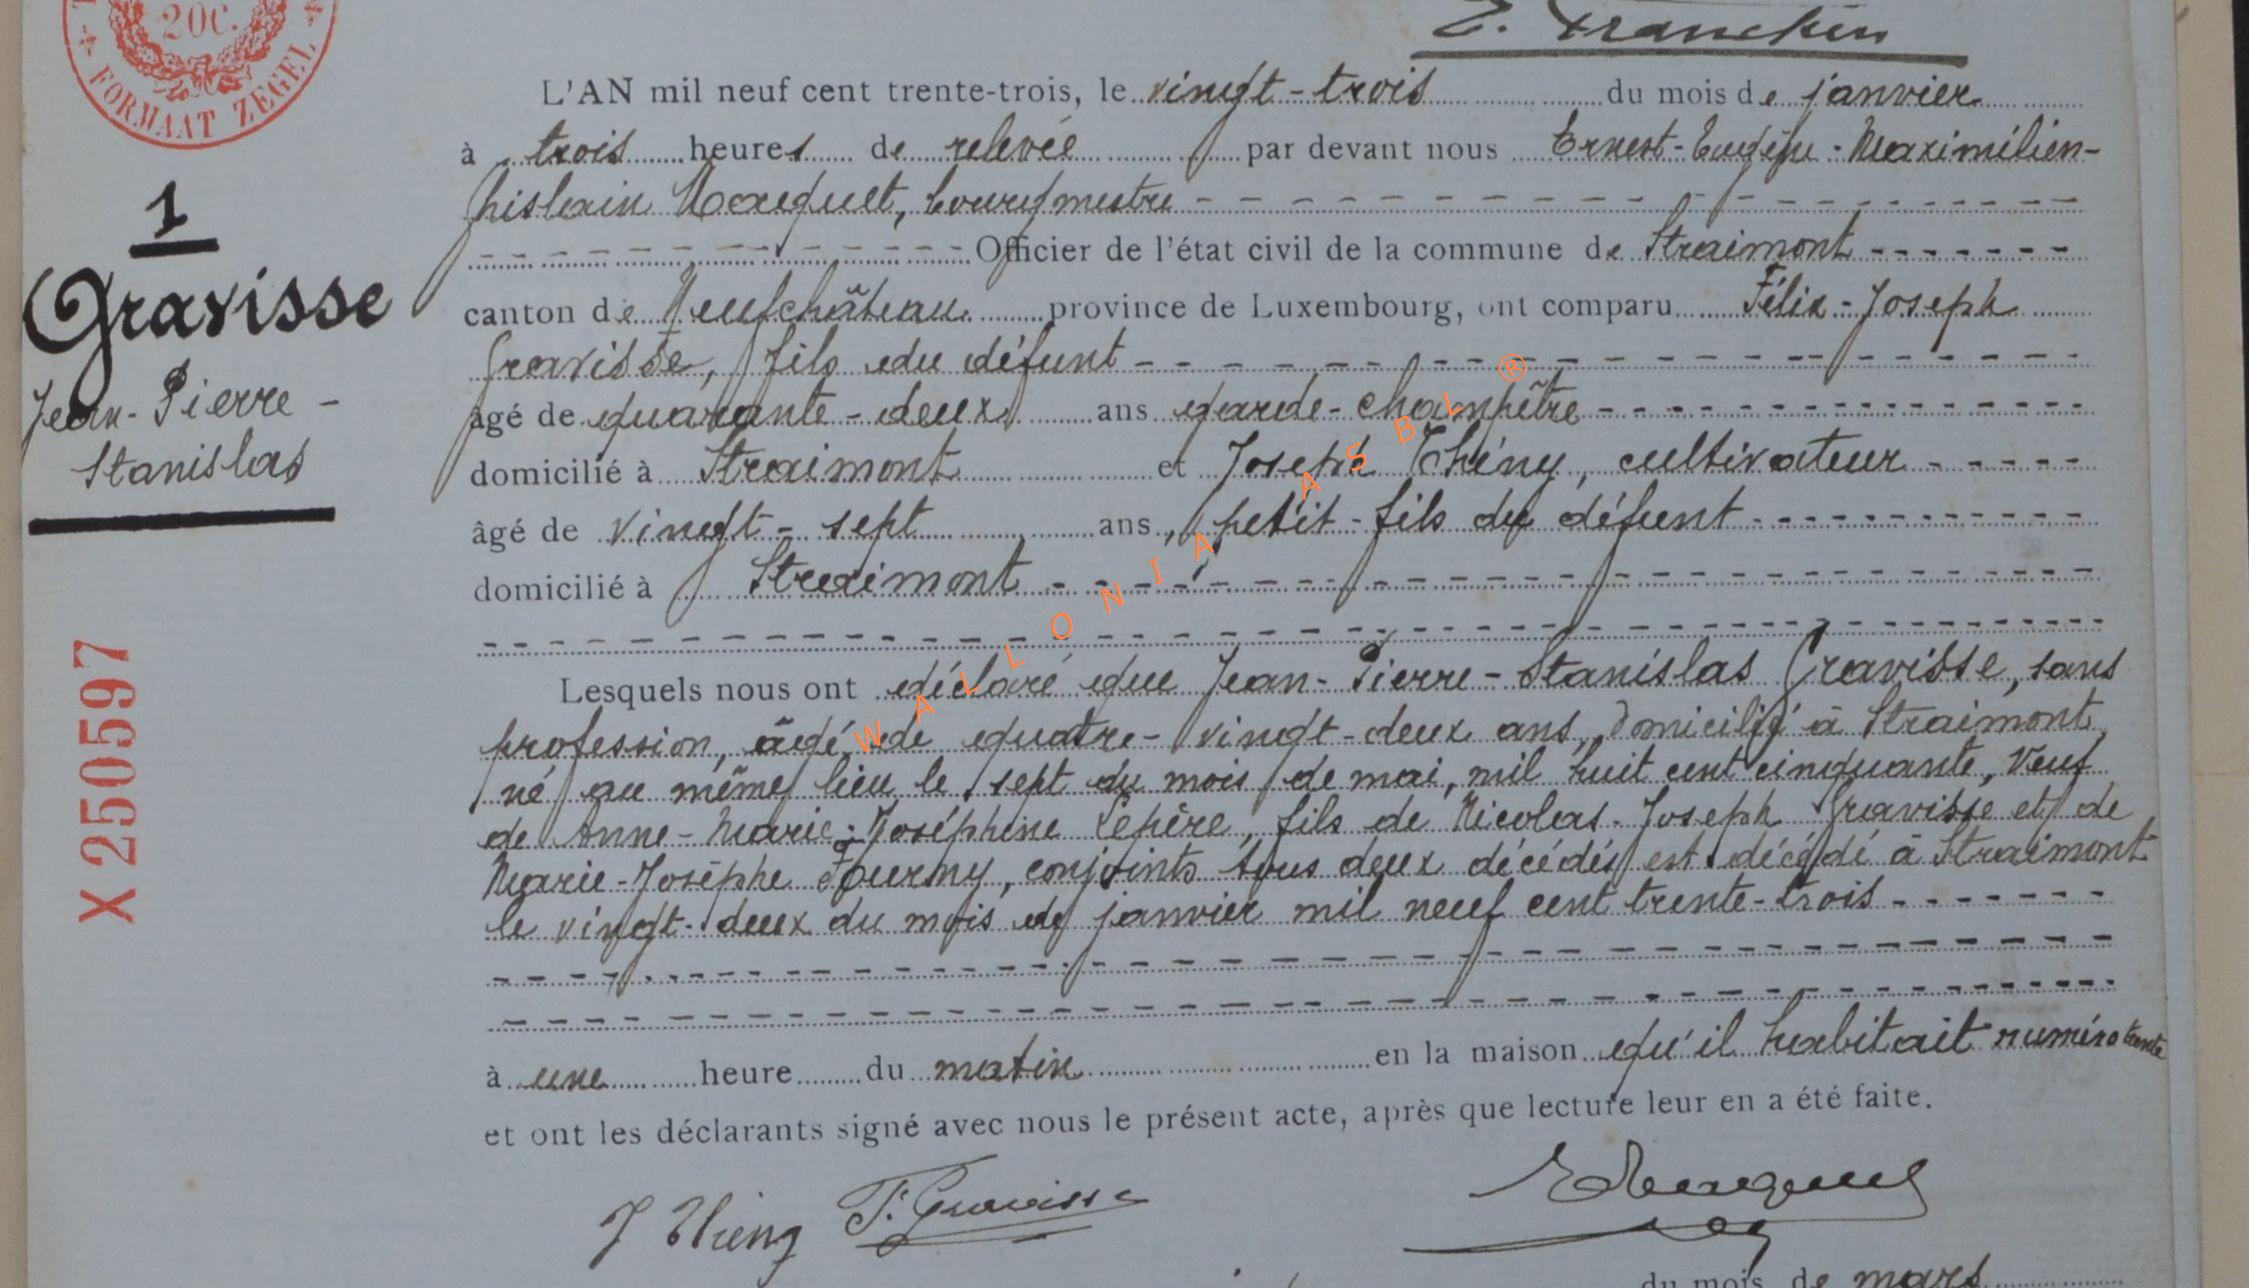 20C.
FORMAAT ZEGEL
E. Franckin
L'AN mil neuf cent trente-trois, le vingt-trois du mois de janvier
à trois heures de relevée par devant nous Ernest-Eugène-Maximilien-
Ghislain Macquet, bourgmestre
Officier de l'état civil de la commune de Straimont
canton de Neufchâteau province de Luxembourg, ont comparu Félix-Joseph
Gravisse, fils du défunt
âgé de quarante-deux ans garde-champêtre
domicilié à Straimont et Joseph Thiny, cultivateur
âgé de vingt-sept ans, petit-fils du défunt
domicilié à Straimont
Lesquels nous ont déclaré que Jean-Pierre-Stanislas Gravisse, sans
profession, âgé de quatre-vingt-deux ans, domicilié à Straimont,
né au même lieu le sept du mois de mai, mil huit cent cinquante, veuf
de Anne-Marie-Joséphine Lepère, fils de Nicolas-Joseph Gravisse et de
Marie-Josèphe Fourny, conjoints tous deux décédés est décédé à Straimont
le vingt-deux du mois de janvier mil neuf cent trente-trois
à une heure du matin en la maison qu'il habitait numéro trente
et ont les déclarants signé avec nous le présent acte, après que lecture leur en a été faite.
F. Gravisse
du mois de mars
1
Gravisse
Jean-Pierre-
Stanislas
X 250597
WALLONIA ASBL ®